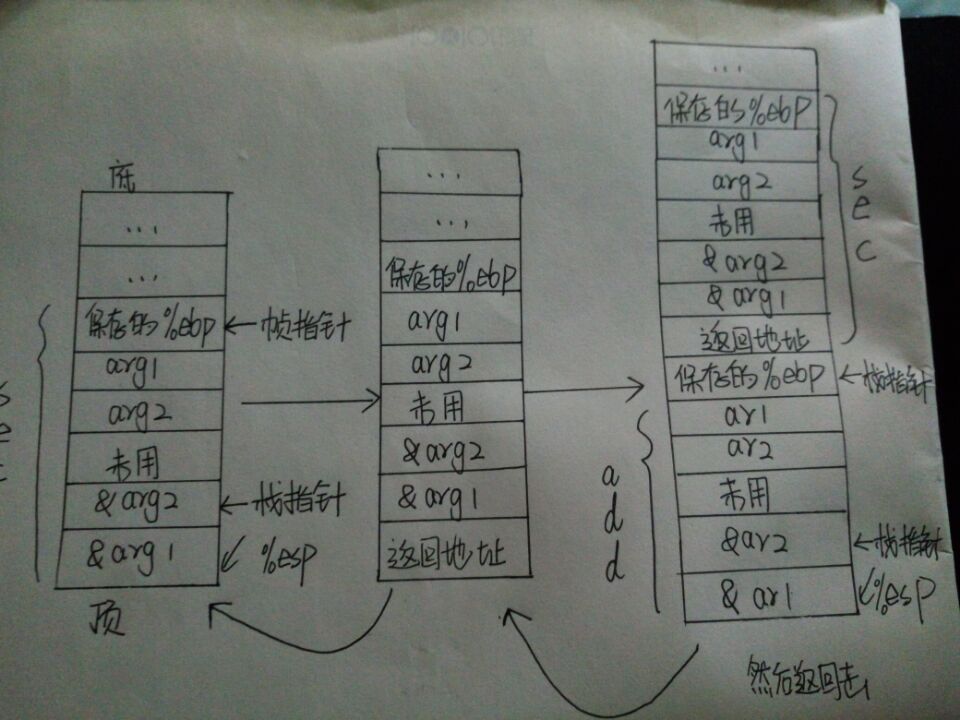 底
...
...
保存的%ebp ←帧指针
arg1
arg2
未用
&arg2 ←栈指针
&arg1 %esp
顶
...
...
保存的%ebp
arg1
arg2
未用
&arg2
&arg1
返回地址
...
保存的%ebp
arg1
arg2
未用
&arg2
&arg1
返回地址
sec
保存的%ebp ←栈指针
ar1
ar2
未用
&ar2 ←栈指针
&ar1 %esp
add
然后返回去